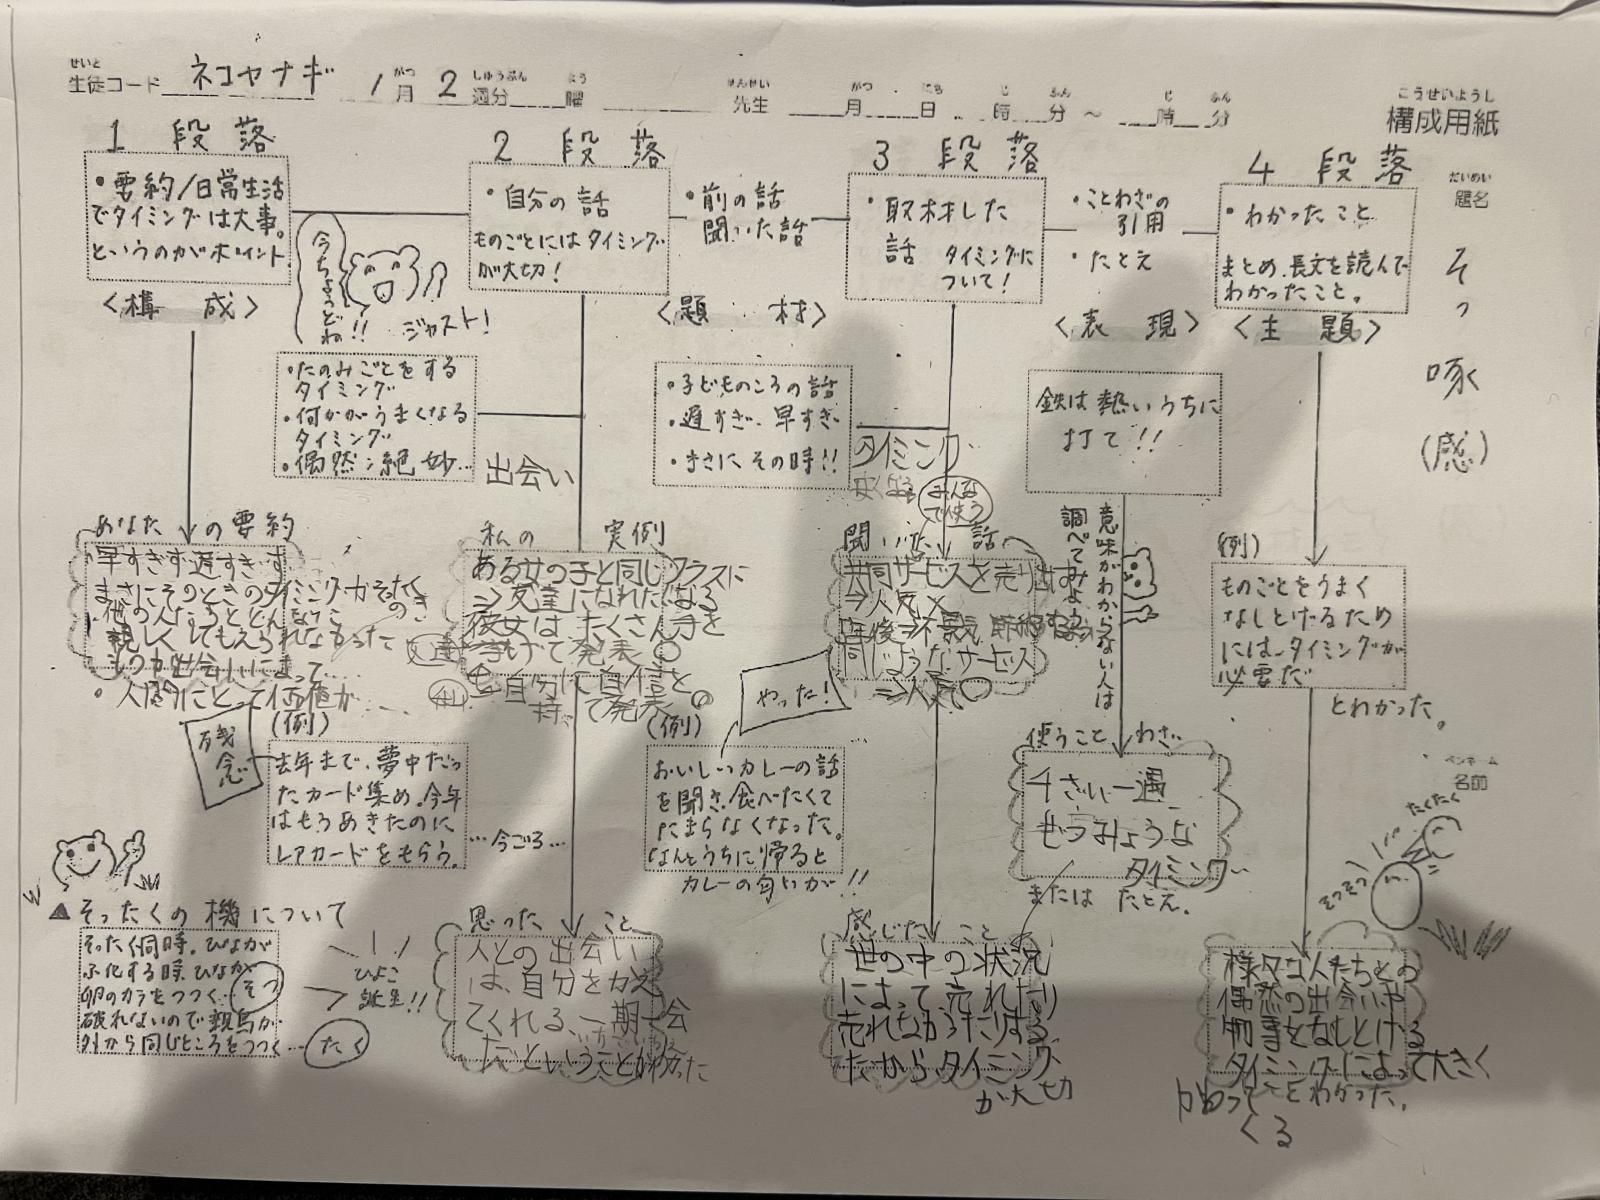 せいと
生徒コード ネコヤナギ 1月 2週分 曜 先生 月 日 時 分 ~ 時 分
こうせいようし
構成用紙
だいめい
題名
そっ
啄
(感)
ペンネーム
名前
1 段落
・要約/日常生活
でタイミングは大事。
というのがポイント
<構 成>
今ちょうどね!!
ジャスト!
2 段落
・自分の話
ものごとにはタイミング
が大切!
・前の話
聞いた話
<題 材>
3 段落
・取材した
話 タイミングに
ついて!
・ことわざの
引用
・たとえ
<表 現>
4 段落
・わかったこと
まとめ、長文を読んで
わかったこと。
<主 題>
・たのみごとをする
タイミング
・何かがうまくなる
タイミング
・偶然:絶妙…
出会い
・子どものころの話
・遅すぎ、早すぎ
・まさにその時!!
タイミング
みんな
で使う
鉄は熱いうちに
打て!!
意味がわからない人は
調べてみよう
あなたの要約
早すぎず遅すぎず
まさにそのときのタイミング
親しくしてもえられなかった
ものが出会いによって…
・人間にとって価値が……
私の 実例
ある女の子と同じクラスに
⇒友達になれたくなる
彼女はたくさん手を
挙げて発表〇
自分に自信を
持って発表〇。
聞いた 話
共同サービスを売り出す
⇒人気×
数年後⇒不景気
同じようなサービス
⇒人気〇
(例)
ものごとをうまく
なしとげるため
には、タイミングが
必要だ
とわかった。
残念
(例)
去年まで、夢中だっ
たカード集め。今年
はもうあきたのに
レアカードをもらう。
…今ごろ…
やった!
(例)
おいしいカレーの話
を聞き、食べたくて
たまらなくなった。
なんとうちに帰ると
カレーの匂いが!!
使うことわざ
千さい一遇
ぜつみょうな
タイミング
または たとえ。
たくたく
そつそつ
▲そったくの機について
そったく同時。ひなが
ふ化する時、ひなが
卵のカラをつつく…そつ
破れないので親鳥が
外から同じところをつつく…たく
ひよこ
誕生!!
思った こと
人との出会い
は、自分をかえ
てくれる、一期一会
だということがわかった
感じた こと
世の中の状況
によって売れたり
売れなかったりする
だからタイミング
が大切
様々な人たちとの
偶然の出会いや
物事をなしとげる
タイミングによって大きく
かわって
くる
とわかった。